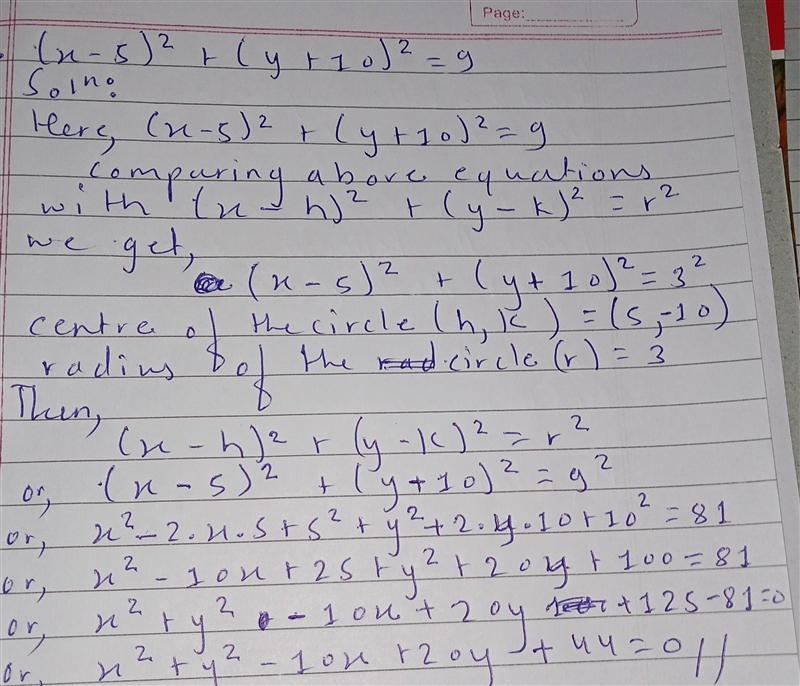 Page:
(x-5)² + (y+10)² = 9
Soln:
Here, (x-5)² + (y+10)² = 9
comparing above equations
with (x-h)² + (y-k)² = r²
we get,
(x-5)² + (y+10)² = 3²
centre of the circle (h, k) = (5, -10)
radius of the circle (r) = 3
Then,
(x-h)² + (y-k)² = r²
or, (x-5)² + (y+10)² = 9²
or, x² - 2.x.5 + 5² + y² + 2.y.10 + 10² = 81
or, x² - 10x + 25 + y² + 20y + 100 = 81
or, x² + y² - 10x + 20y + 125 - 81 = 0
or, x² + y² - 10x + 20y + 44 = 0 //